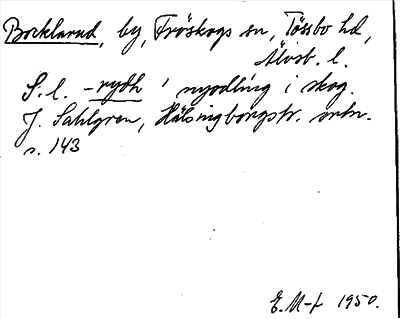 Bocklarud, by, Fröskogs sn, Tössbo hd,
Älvsb. l.
S. l. -rydh ' nyodling i skog.
J. Sahlgren, Hälsingborgstr. ortn.
s. 143
E. M-f 1950.